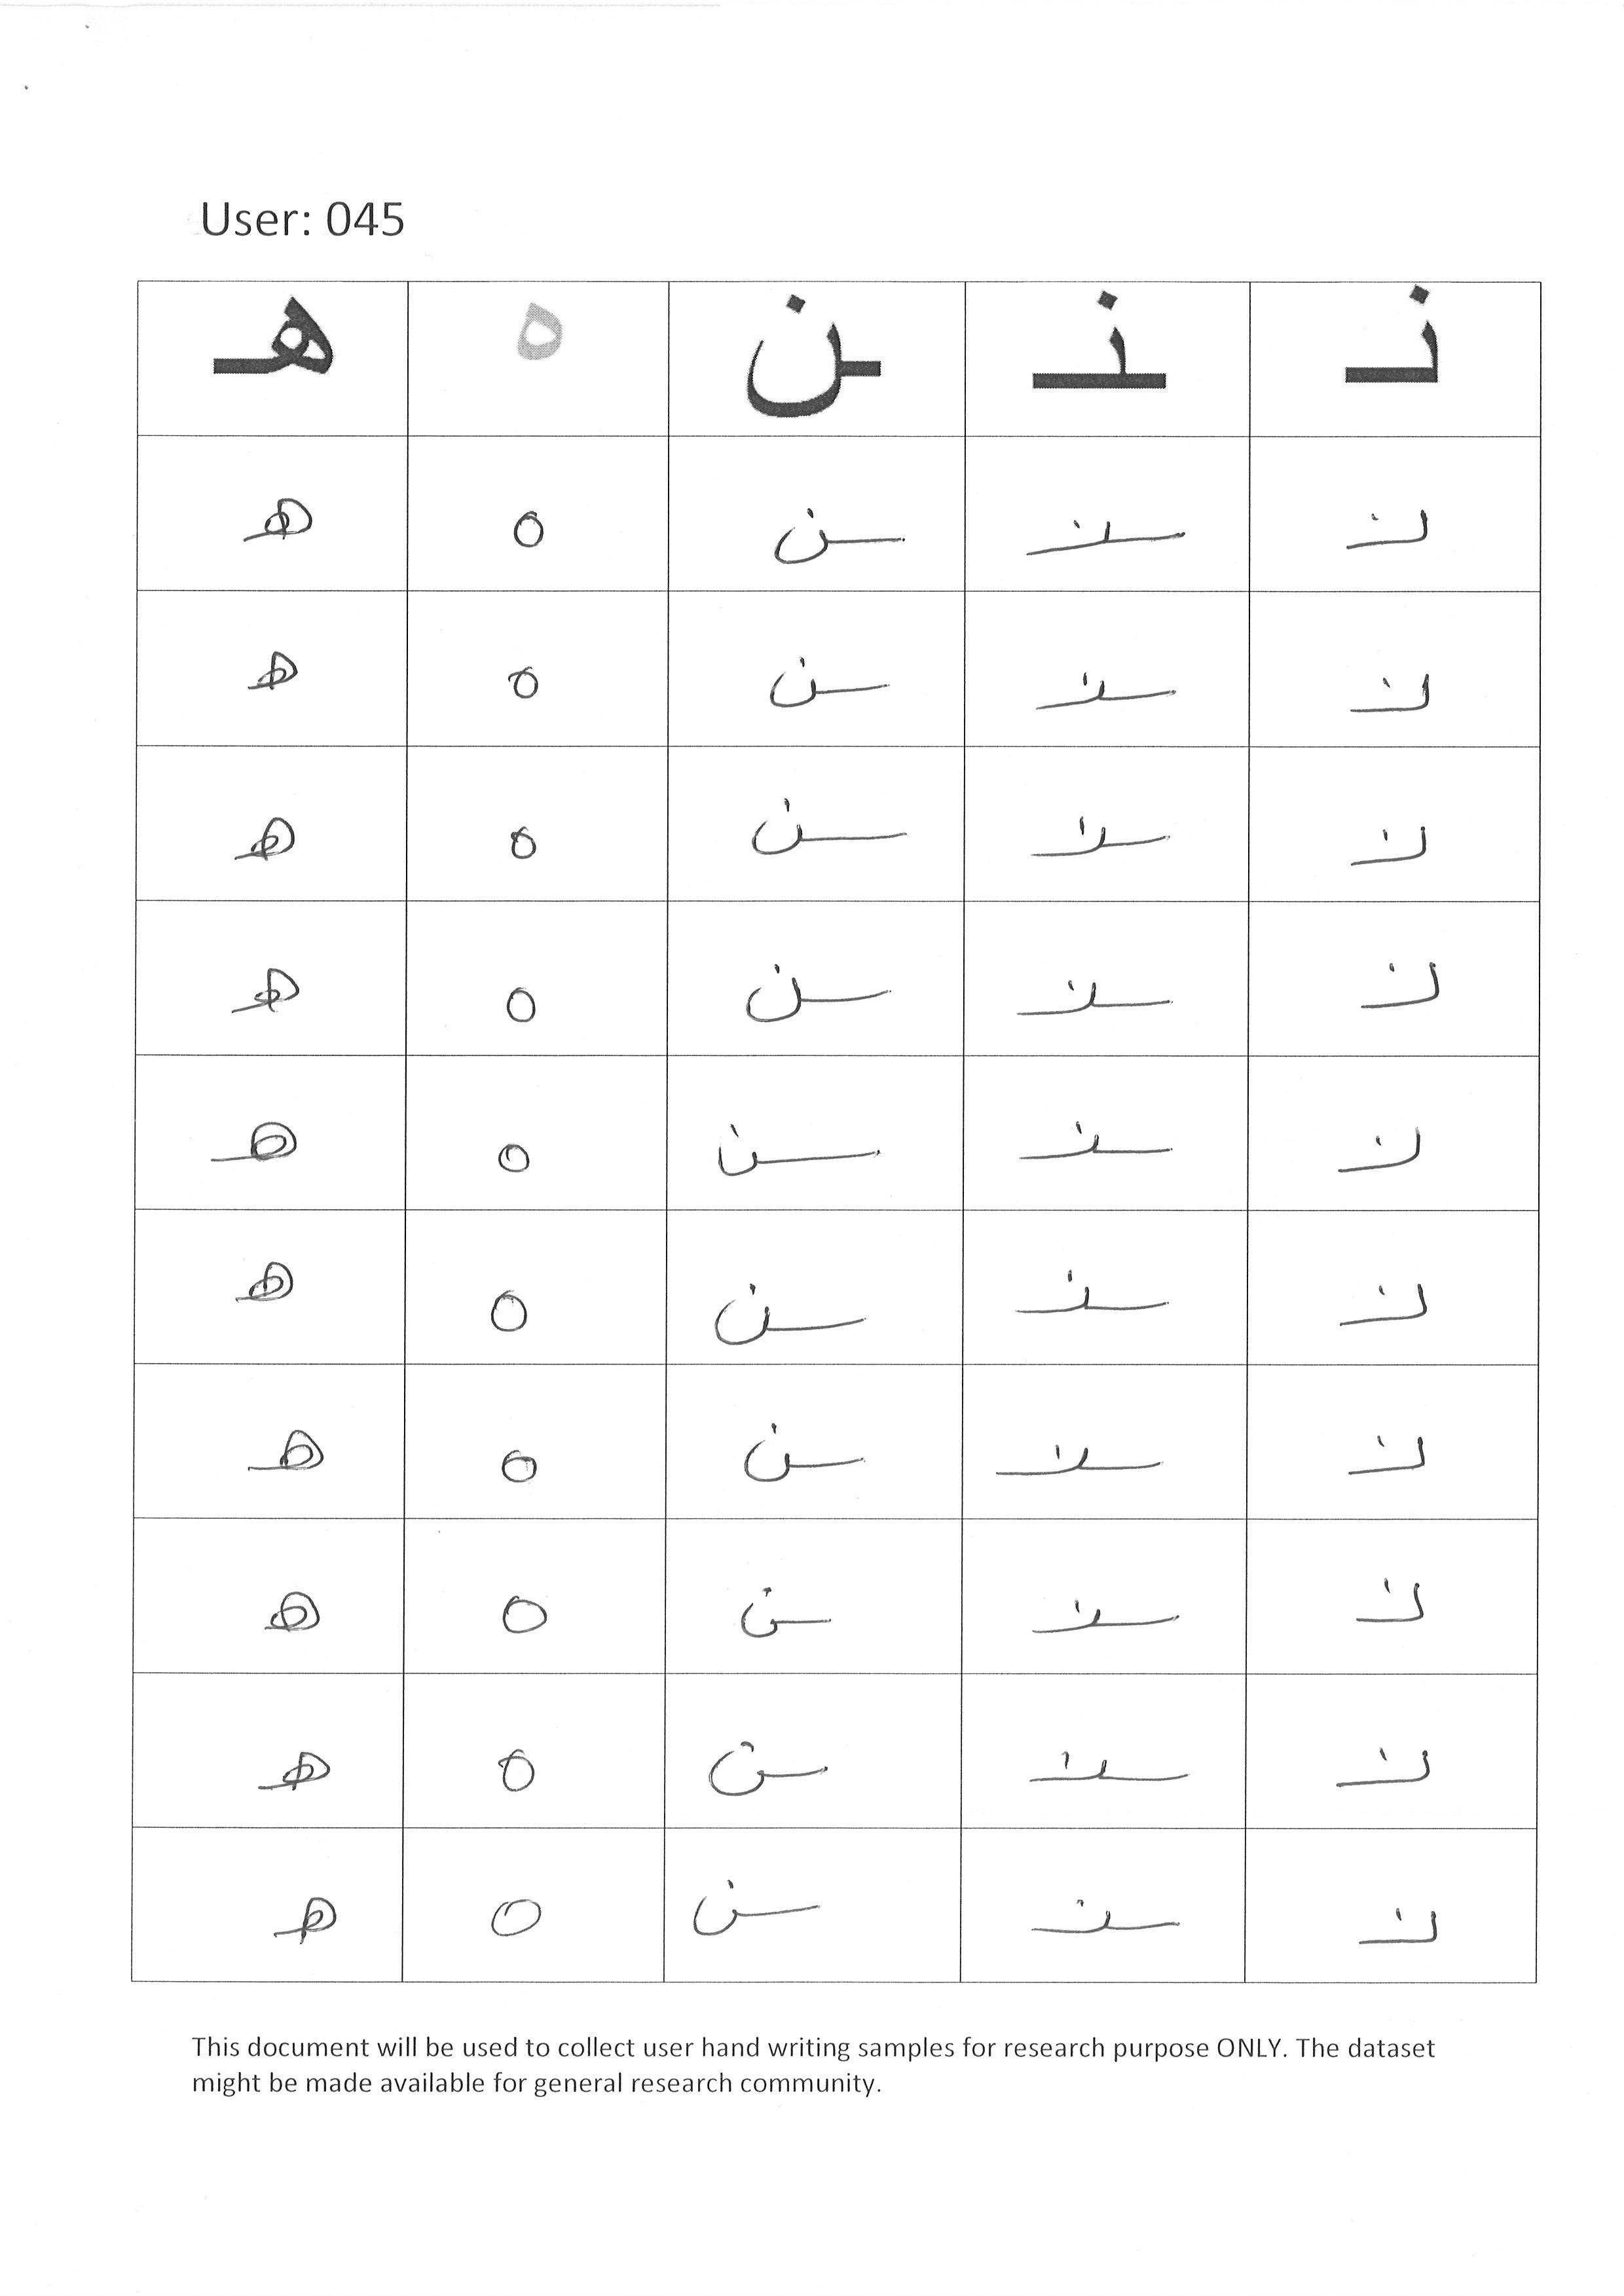 User: 045
نـ ـنـ ـن ه هـ
نـ ـنـ ـن ه هـ
نـ ـنـ ـن ه هـ
نـ ـنـ ـن ه هـ
نـ ـنـ ـن ه هـ
نـ ـنـ ـن ه هـ
نـ ـنـ ـن ه هـ
نـ ـنـ ـن ه هـ
نـ ـنـ ـن ه هـ
نـ ـنـ ـن ه هـ
نـ ـنـ ـن ه هـ
This document will be used to collect user hand writing samples for research purpose ONLY. The dataset
might be made available for general research community.